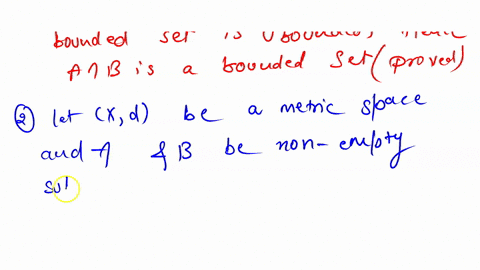 bounded set is bounded, Hence
A∩B is a bounded set (proved)
② let (X, d) be a metric space
and A & B be non-empty
sub